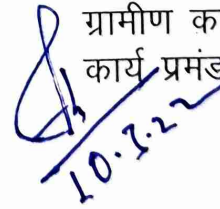 ग्रामीण क
कार्य प्रमंड
10.3.22